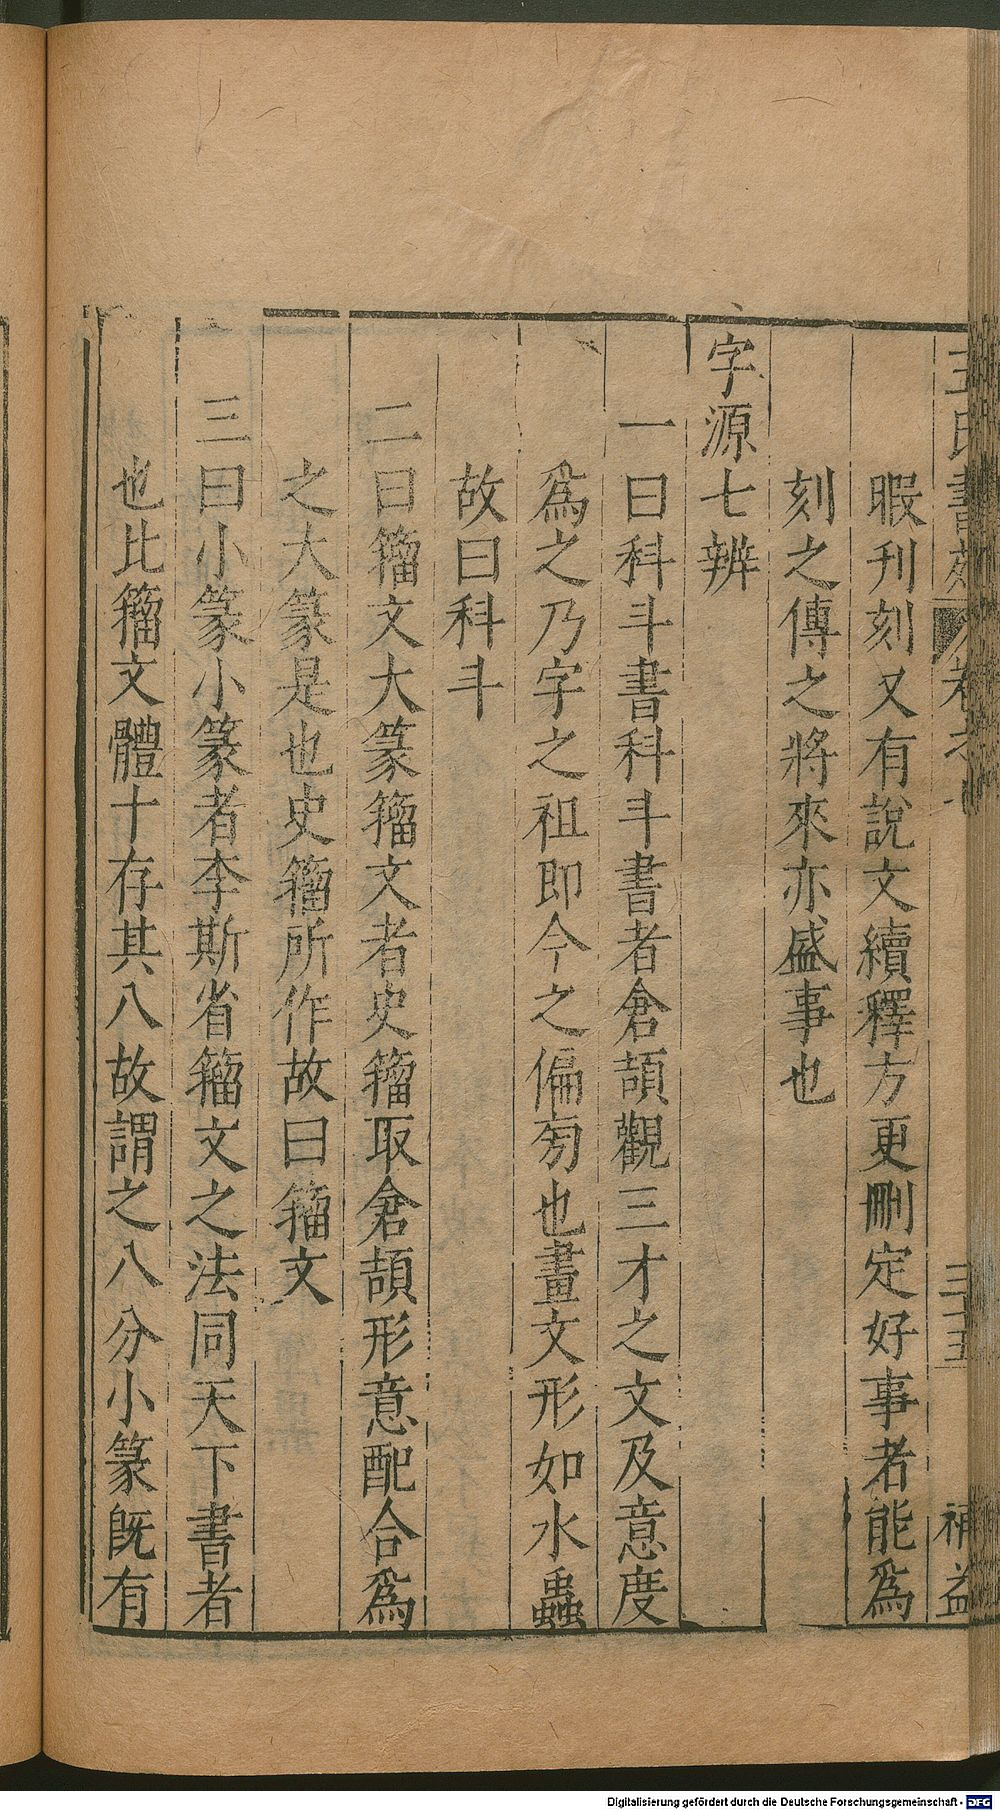 王氏書苑 卷之 三十五 補益
暇刊刻又有說文續釋方更刪定好事者能爲
刻之傳之將來亦盛事也
字源七辨
一曰科斗書科斗書者倉頡觀三才之文及意度
爲之乃字之祖即今之偏旁也畫文形如水蟲
故曰科斗
二曰籀文大篆籀文者史籀取倉頡形意配合爲
之大篆是也史籀所作故曰籀文
三曰小篆小篆者李斯省籀文之法同天下書者
也比籀文體十存其八故謂之八分小篆既有
Digitalisierung gefördert durch die Deutsche Forschungsgemeinschaft - DFG